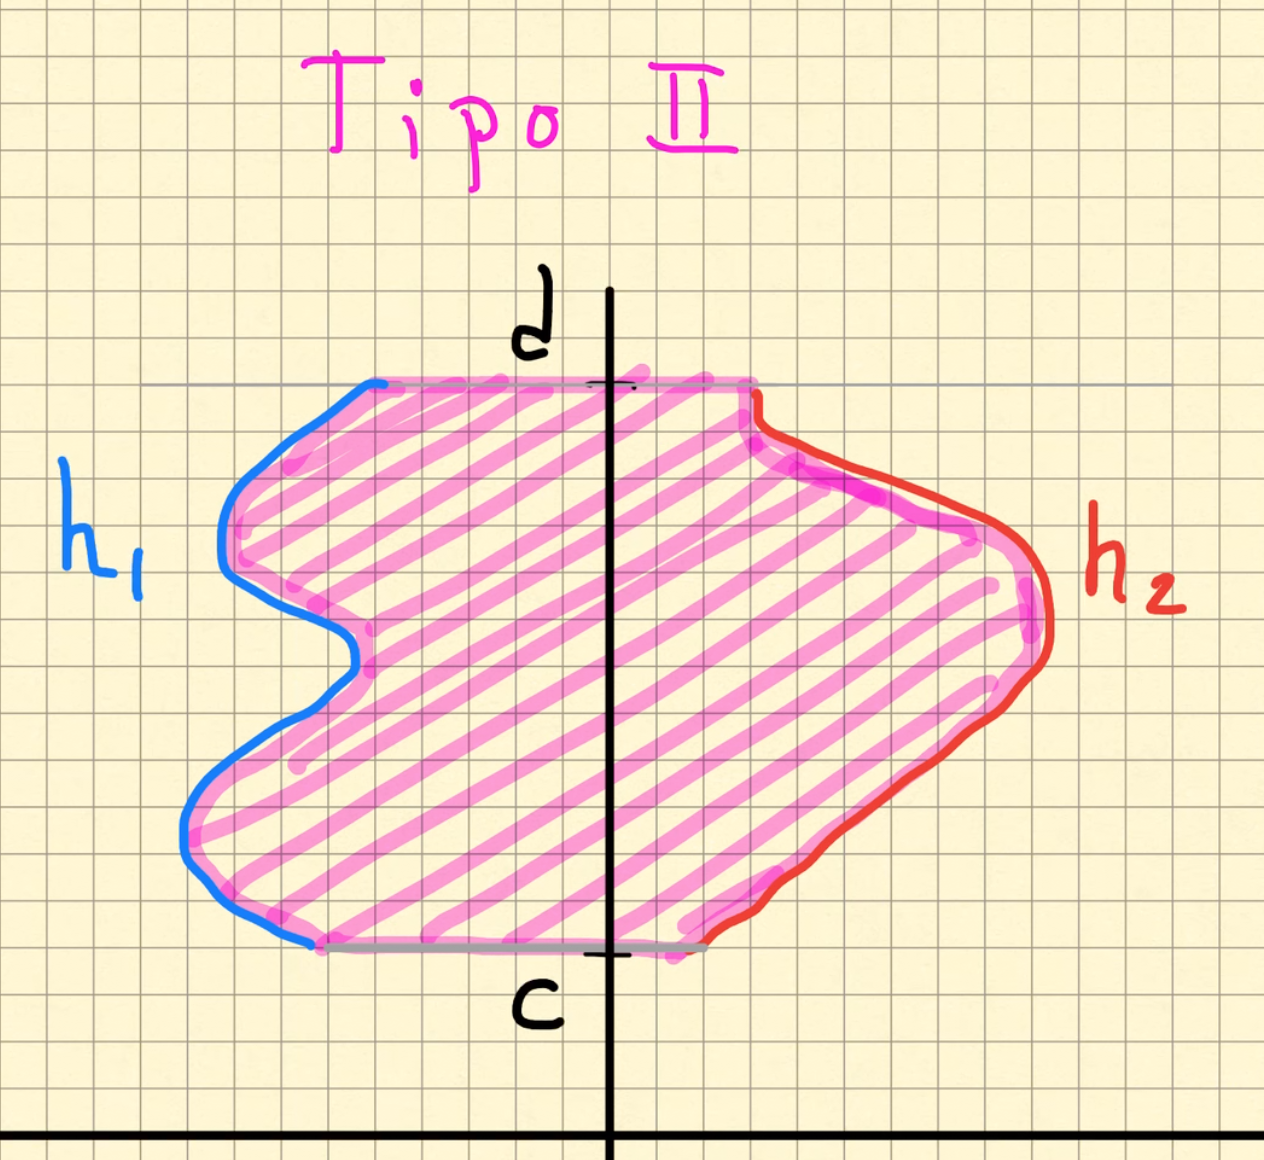 Tipo II
d
h1
h2
c